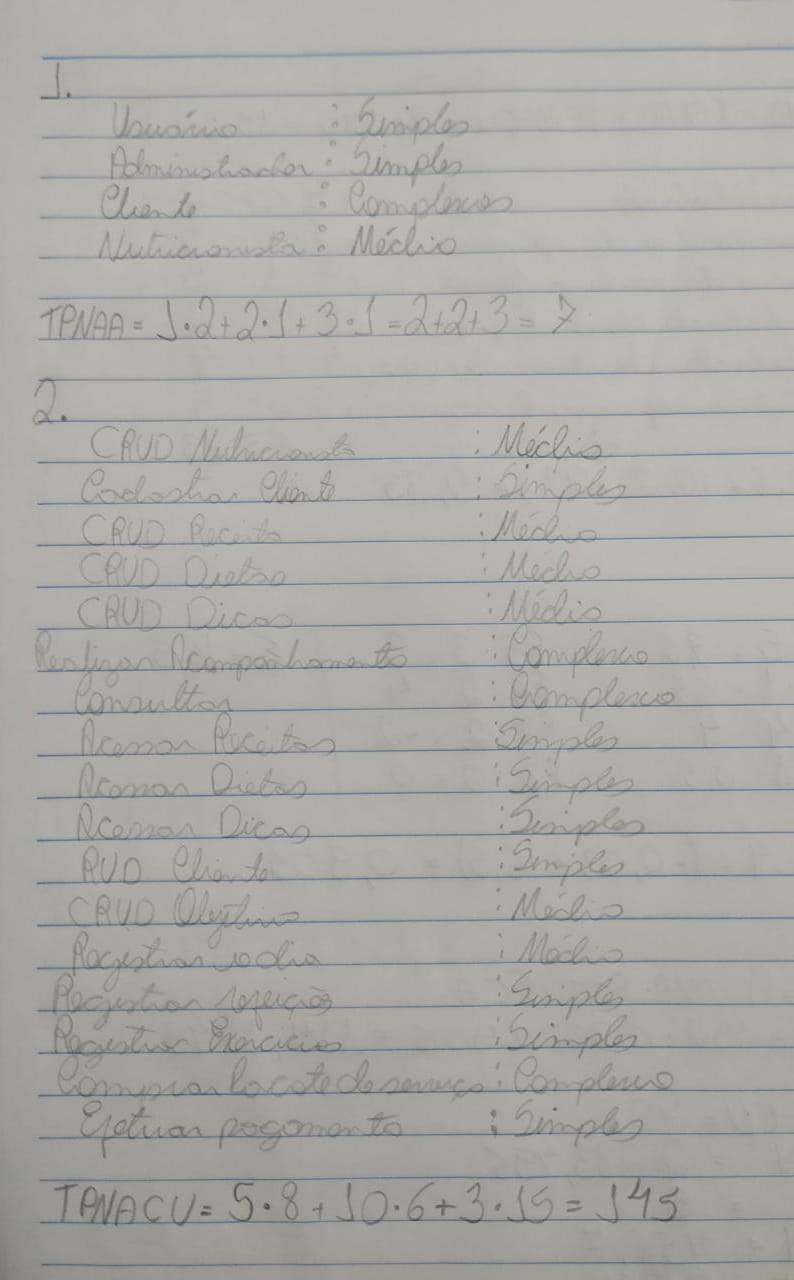 1.
Usuário : Simples
Administrador : Simples
Cliente : Complexos
Nutricionista : Médio
TPNAA = 1·2 + 2·1 + 3·1 = 2+2+3 = 7
2.
CRUD Nutricionista : Médio
Cadastrar Cliente : Simples
CRUD Receita : Médio
CRUD Dietas : Médio
CRUD Dicas : Médio
Realizar Acompanhamento : Complexo
Consultar : Complexo
Acessar Receitas : Simples
Acessar Dietas : Simples
Acessar Dicas : Simples
RUD Cliente : Simples
CRUD Objetivo : Médio
Registrar dia : Médio
Registrar refeições : Simples
Registrar Exercicios : Simples
Comprar Pacote de serviço : Complexo
Efetuar pagamento : Simples
TPNACU = 5·8 + 10·6 + 3·15 = 145